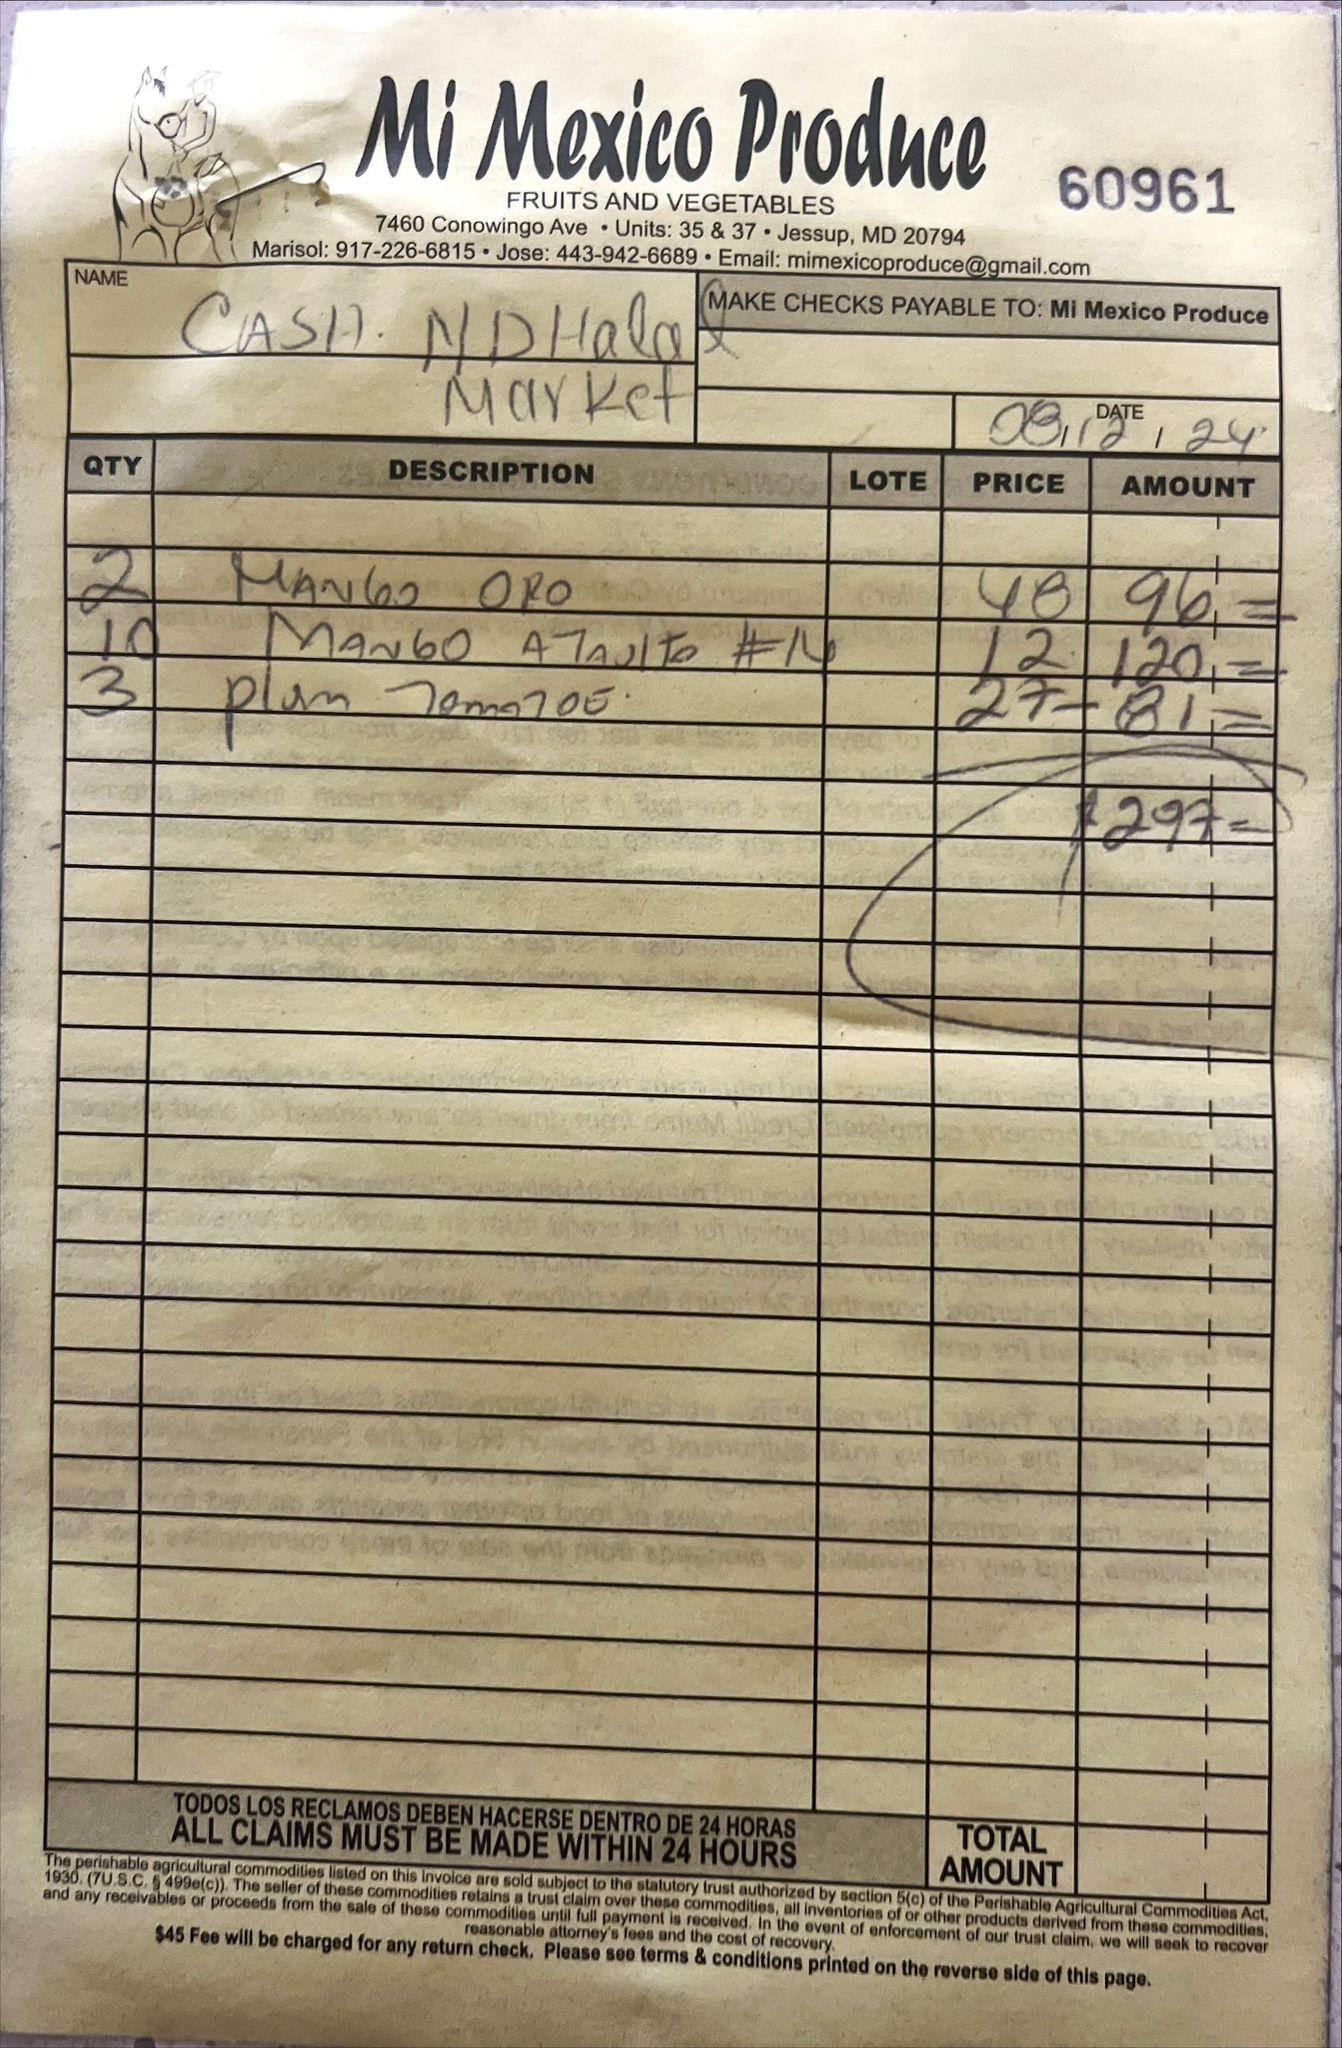 Mi Mexico Produce
60961
FRUITS AND VEGETABLES
7460 Conowingo Ave • Units: 35 & 37 • Jessup, MD 20794
Marisol: 917-226-6815 • Jose: 443-942-6689 • Email: mimexicoproduce@gmail.com
NAME
CASH. ND Halal
Market
MAKE CHECKS PAYABLE TO: Mi Mexico Produce
DATE
08, 12, 24
QTY DESCRIPTION LOTE PRICE AMOUNT
2 MANGO ORO 48 96,=
10 MANGO ATAULFO #14 12 120,=
3 plum TOMATOE. 27- 81,=
$297=
TODOS LOS RECLAMOS DEBEN HACERSE DENTRO DE 24 HORAS
ALL CLAIMS MUST BE MADE WITHIN 24 HOURS
TOTAL
AMOUNT
The perishable agricultural commodities listed on this invoice are sold subject to the statutory trust authorized by section 5(c) of the Perishable Agricultural Commodities Act,
1930. (7U.S.C. § 499e(c)). The seller of these commodities retains a trust claim over these commodities, all inventories of or other products derived from these commodities,
and any receivables or proceeds from the sale of these commodities until full payment is received. In the event of enforcement of our trust claim, we will seek to recover
reasonable attorney's fees and the cost of recovery.
$45 Fee will be charged for any return check. Please see terms & conditions printed on the reverse side of this page.